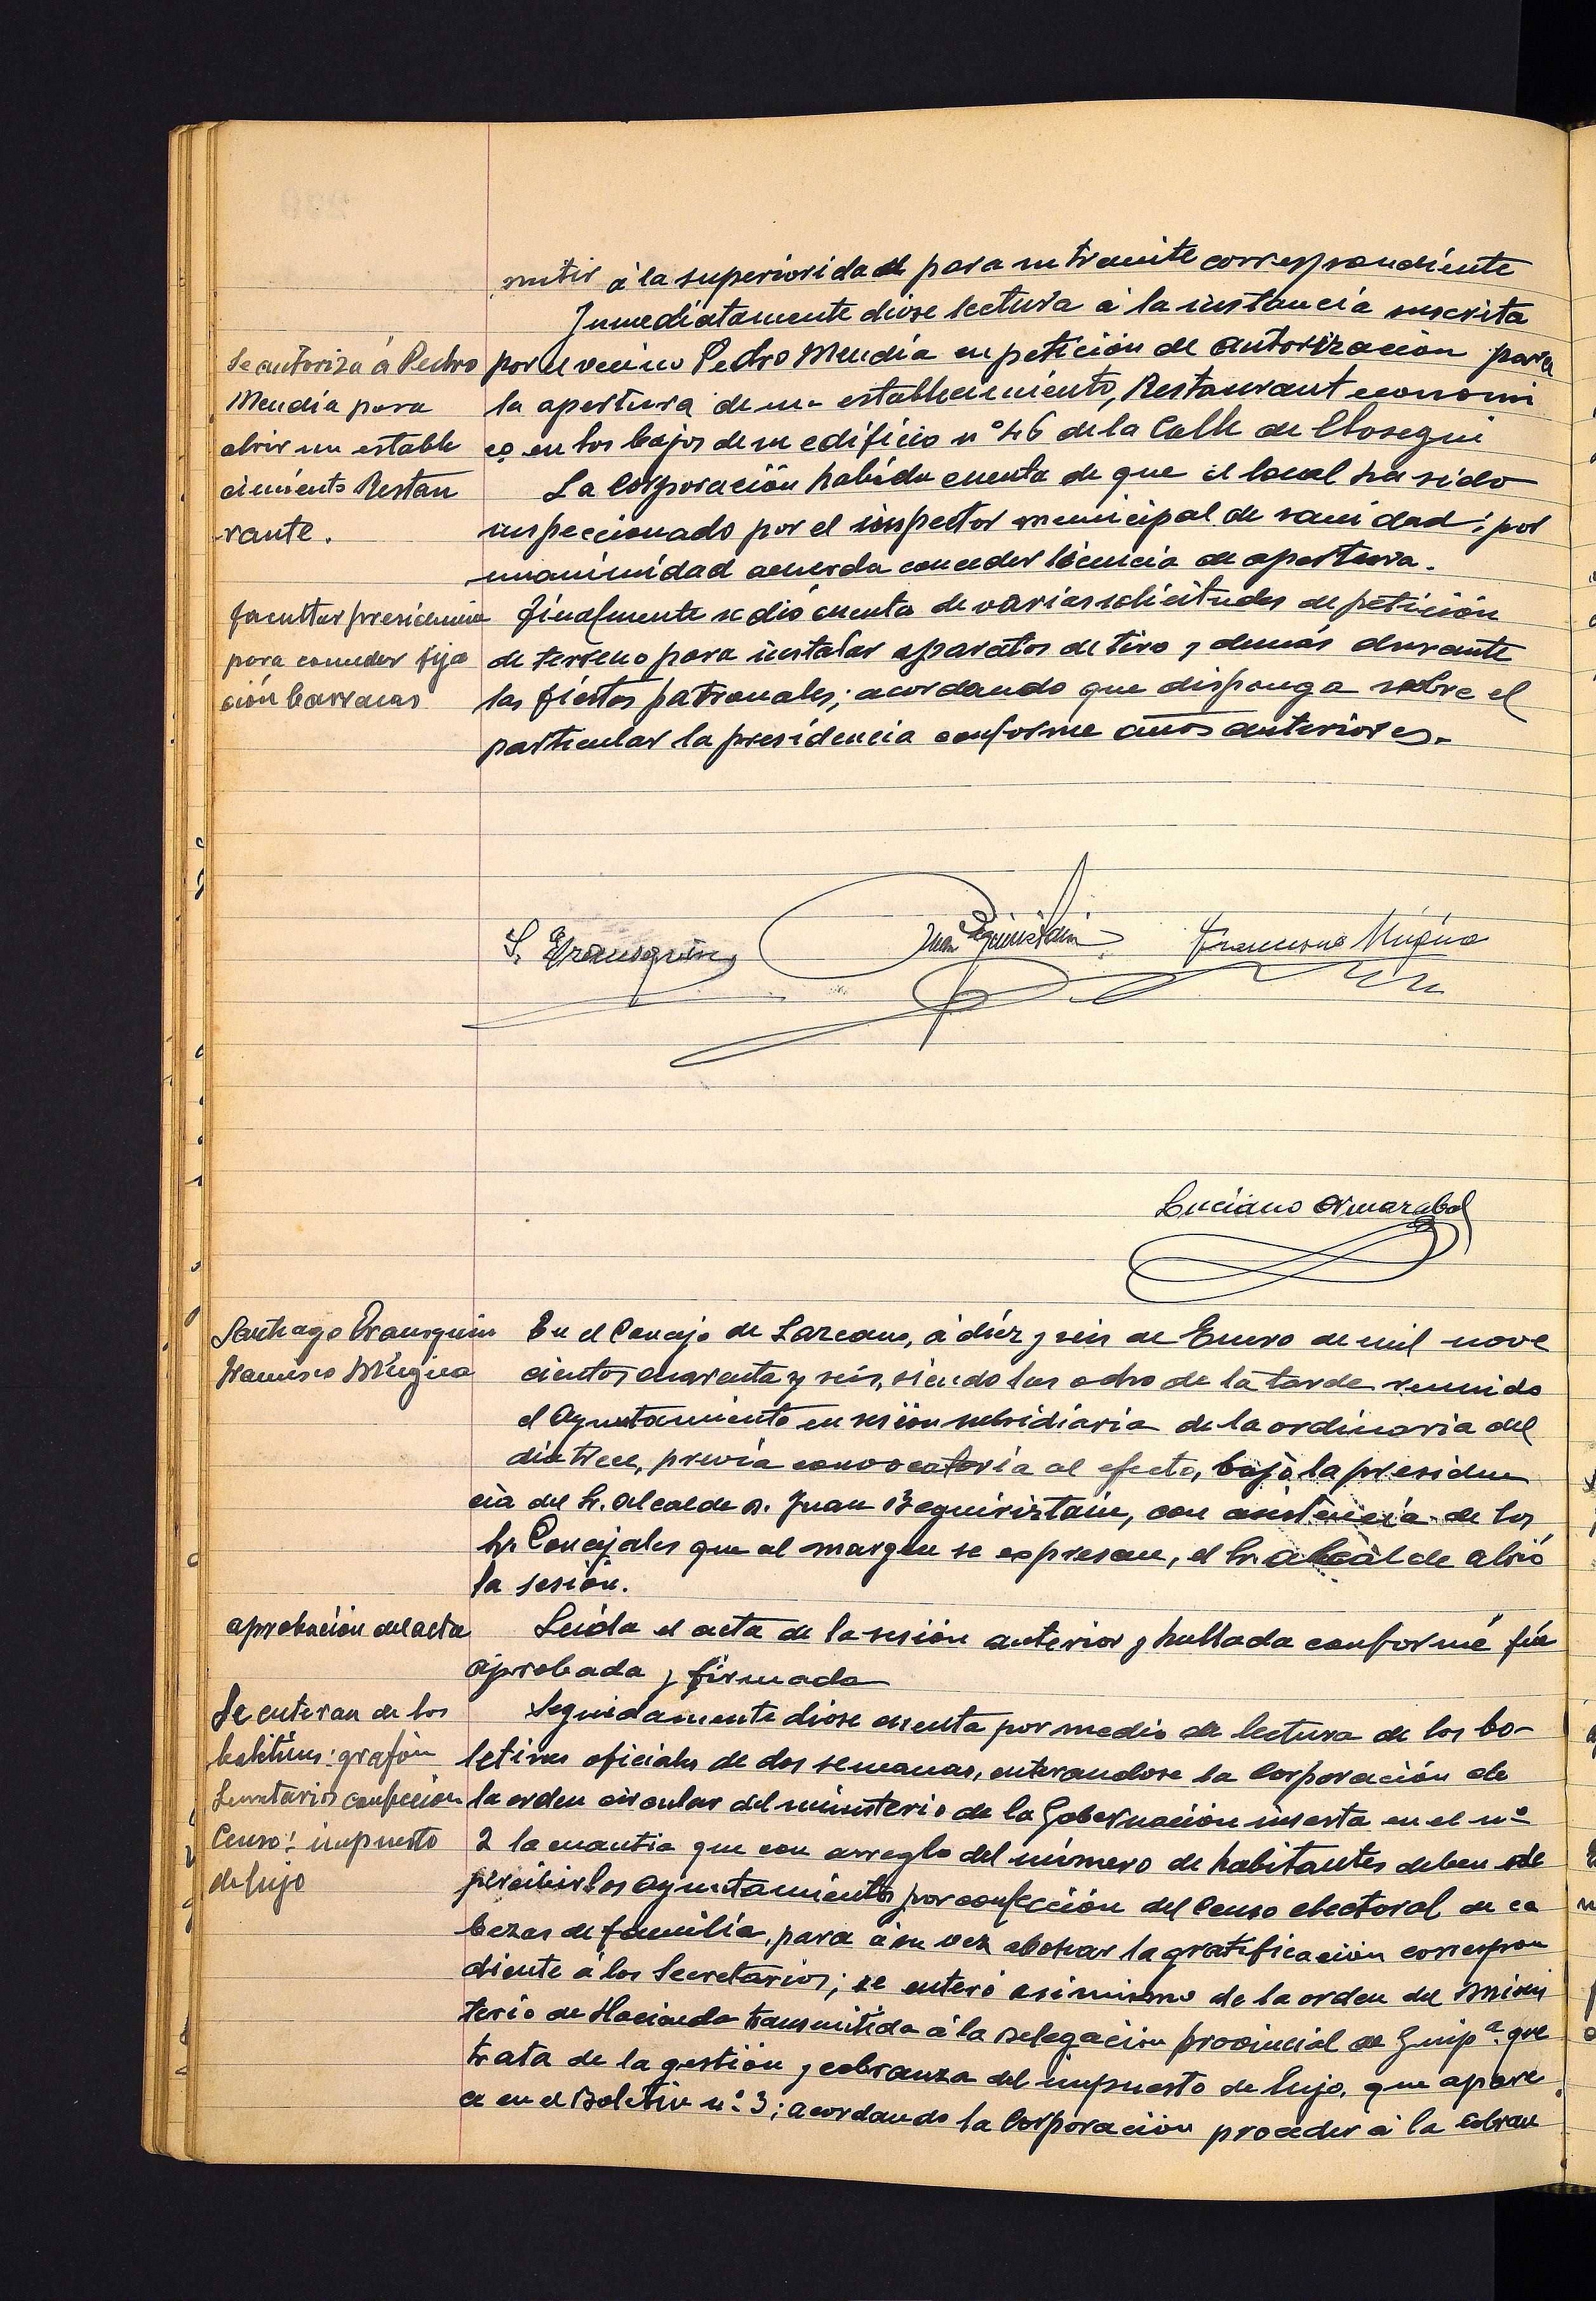 mitir á la superioridad para su tramite correspondiente
Inmediatamente diose lectura á la instancia suscrita
Se autoriza á Pedro
Mendia para
abrir un estable
cimiento Restau
rante.
por el vecino Pedro Mendia en petición de autorización para
la apertura de un establecimiento, Restaurant economi
co en los bajos de su edificio nº 46 de la Calle de Elosegui
La Corporación habida cuenta de que el local ha sido
inspeccionado por el inspector municipal de sanidad; por
unanimidad acuerda conceder licencia de apertura.
facultar presidencia
para conceder fija
ción barracas
Finalmente se dió cuenta de varias solicitudes de petición
de terreno para instalar aparatos de tiro y demás durante
las fiestas patronales; acordando que disponga sobre el
particular la presidencia conforme años anteriores.-
S. Juan Beguiristain Francisco Múgica
Luciano
Santiago
Francisco Múgica
En el Concejo de Lazcano, á diez y seis de Enero de mil nove
cientos cuarenta y seis, siendo las ocho de la tarde reunido
el Ayuntamiento en sesión subsidiaria de la ordinaria del
día trece, previa convocatoria al efecto, bajo la presiden
cia del Sr. Alcalde D. Juan Beguiristain, con asistencia de los
Sr. Concejales que al margen se expresan, el Sr. alcalde abrió
la sesión.
aprobación del acta
Leida el acta de la sesión anterior y hallada conforme fué
aprobada y firmada
Se enteran de los
boletines:
Secretarios confeccion
Censo: impuesto
de lujo
Seguidamente diose cuenta por medio de lectura de los bo-
letines oficiales de dos semanas, enterandose la Corporación de
la orden circular del ministerio de la Gobernación inserta en el nº
2 la cuantia que con arreglo del número de habitantes deben de
percibir los Ayuntamientos por confección del Censo electoral de ca
bezas de familia, para á su vez abonar la gratificación correspon
diente á los Secretarios; se enteró asimismo de la orden del Minis
terio de Hacienda transmitida á la Delegación provincial de Guipª. que
trata de la gestión y cobranza del impuesto de lujo, que apare
ce en el Boletin nº. 3; acordando la Corporación proceder á la cobran